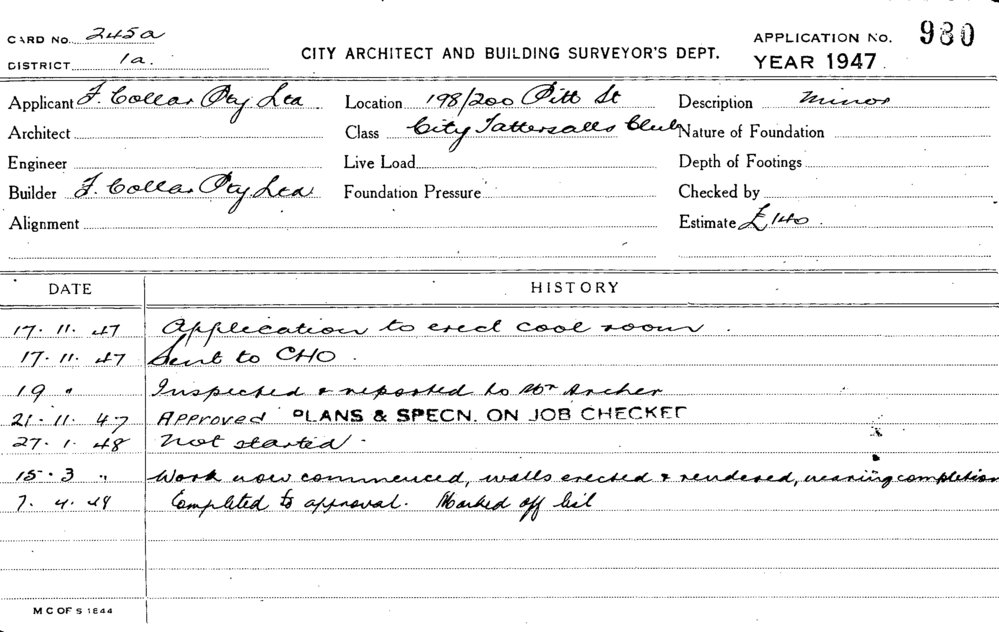 CARD No. 245a
DISTRICT 1a.
CITY ARCHITECT AND BUILDING SURVEYOR'S DEPT.
APPLICATION No. 980
YEAR 1947.
Applicant F. Collar Pty Ltd Location 198/200 Pitt St Description Minor
Architect Class City Tattersalls Club Nature of Foundation
Engineer Live Load Depth of Footings
Builder F. Collar Pty Ltd Foundation Pressure Checked by
Alignment Estimate £140.
DATE HISTORY
17. 11. 47 Application to erect cool room.
17. 11. 47 Sent to CHO.
19 " Inspected & reported to Mr Archer
21. 11. 47 Approved PLANS & SPECN. ON JOB CHECKED
27. 1. 48 Not started.
15. 3 " Work now commenced, walls erected & rendered, nearing completion
7. 4. 48 Completed to approval. Marked off list
M C OF S 1844